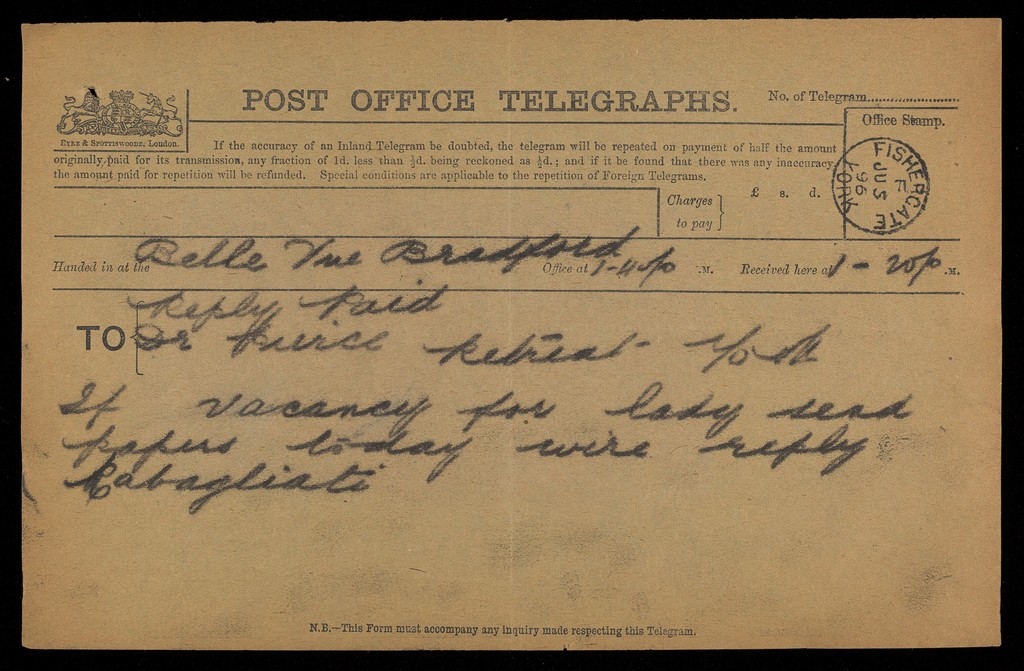 POST OFFICE TELEGRAPHS.
No. of Telegram
EYRE & SPOTTISWOODE, London.
Office Stamp.
If the accuracy of an Inland Telegram be doubted, the telegram will be repeated on payment of half the amount
originally paid for its transmission, any fraction of 1d. less than ½d. being reckoned as ½d.; and if it be found that there was any inaccuracy,
the amount paid for repetition will be refunded. Special conditions are applicable to the repetition of Foreign Telegrams.
FISHERGATE YORK
F
JU 5
96
Charges
to pay
£ s. d.
Handed in at the Belle Vue Bradford Office at 1-4 p .M. Received here at 1-20 p .M.
Reply Paid
TO Dr Pierce Retreat York
If vacancy for lady send
papers today wire reply
Rabagliati
N.B.—This Form must accompany any inquiry made respecting this Telegram.